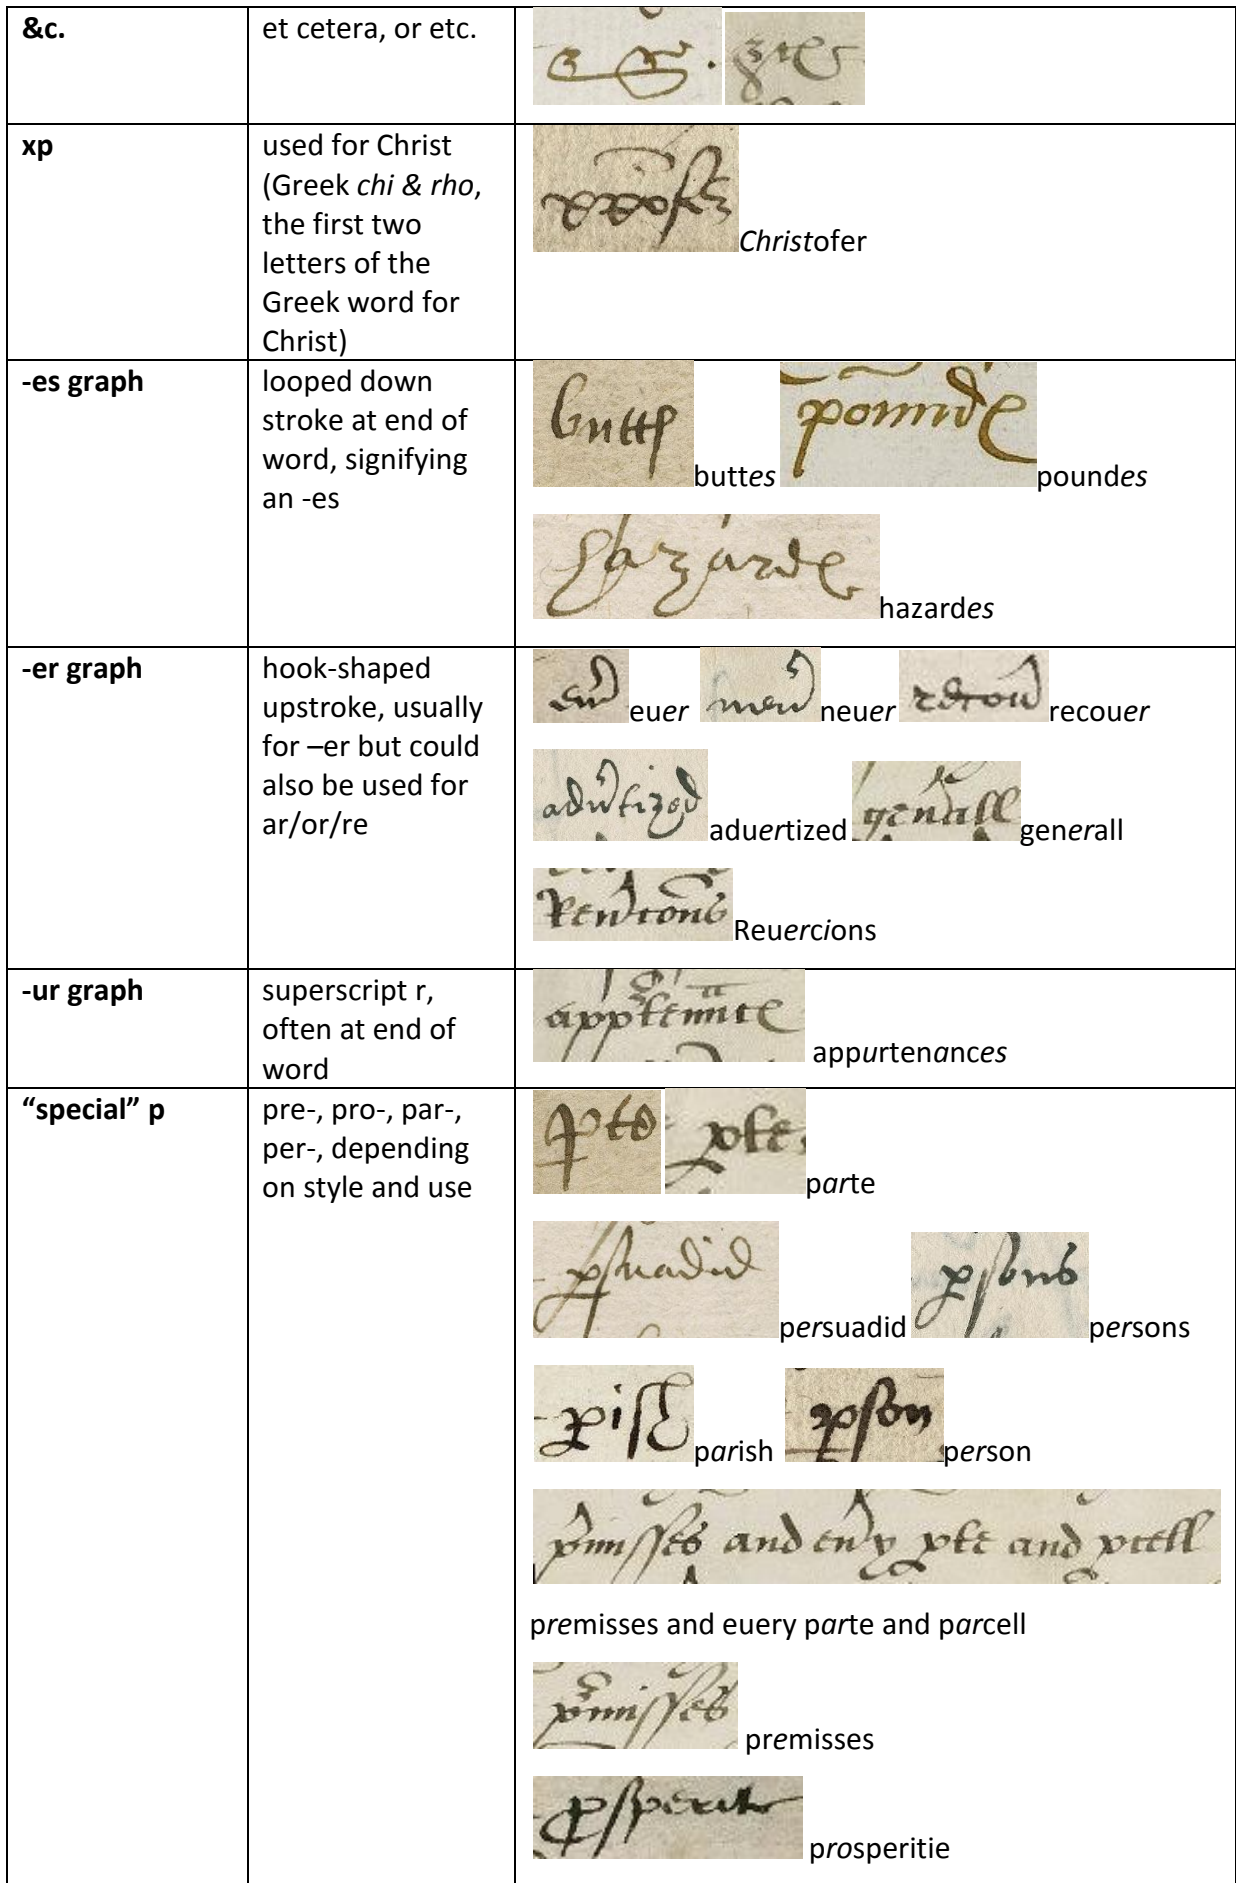 &c.
et cetera, or etc.
xp
used for Christ
(Greek chi & rho,
the first two
letters of the
Greek word for
Christ)
Christofer
-es graph
looped down
stroke at end of
word, signifying
an -es
buttes poundes
hazardes
-er graph
hook-shaped
upstroke, usually
for –er but could
also be used for
ar/or/re
euer neuer recouer
aduertized generall
Reuercions
-ur graph
superscript r,
often at end of
word
appurtenances
“special” p
pre-, pro-, par-,
per-, depending
on style and use
parte
persuadid persons
parish person
premisses and euery parte and parcell
premisses
prosperitie